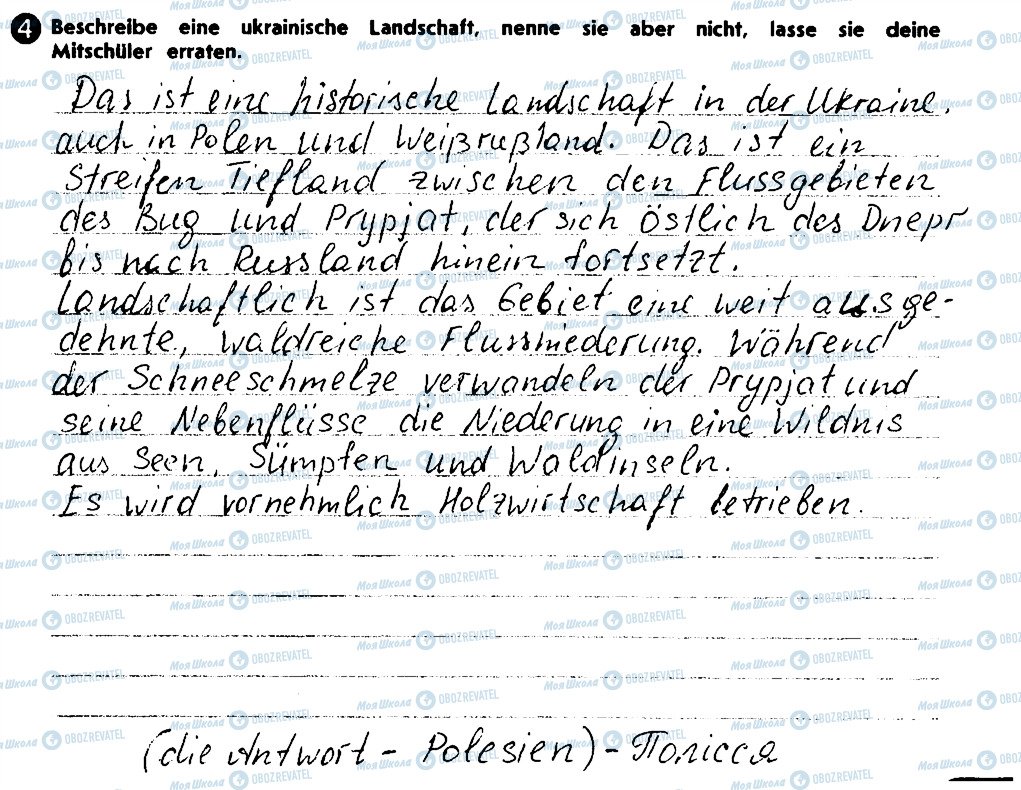 4 Beschreibe eine ukrainische Landschaft, nenne sie aber nicht, lasse sie deine
Mitschüler erraten.
Das ist eine historische Landschaft in der Ukraine,
auch in Polen und Weißrußland. Das ist ein
Streifen Tiefland zwischen den Flussgebieten
des Bug und Prypjat, der sich östlich des Dnepr
bis nach Russland hinein fortsetzt.
Landschaftlich ist das Gebiet eine weit ausge-
dehnte, waldreiche Flussniederung. Während
der Schneeschmelze verwandeln der Prypjat und
seine Nebenflüsse die Niederung in eine Wildnis
aus Seen, Sümpfen und Waldinseln.
Es wird vornehmlich Holzwirtschaft betrieben.
(die Antwort - Polesien) - Полісся